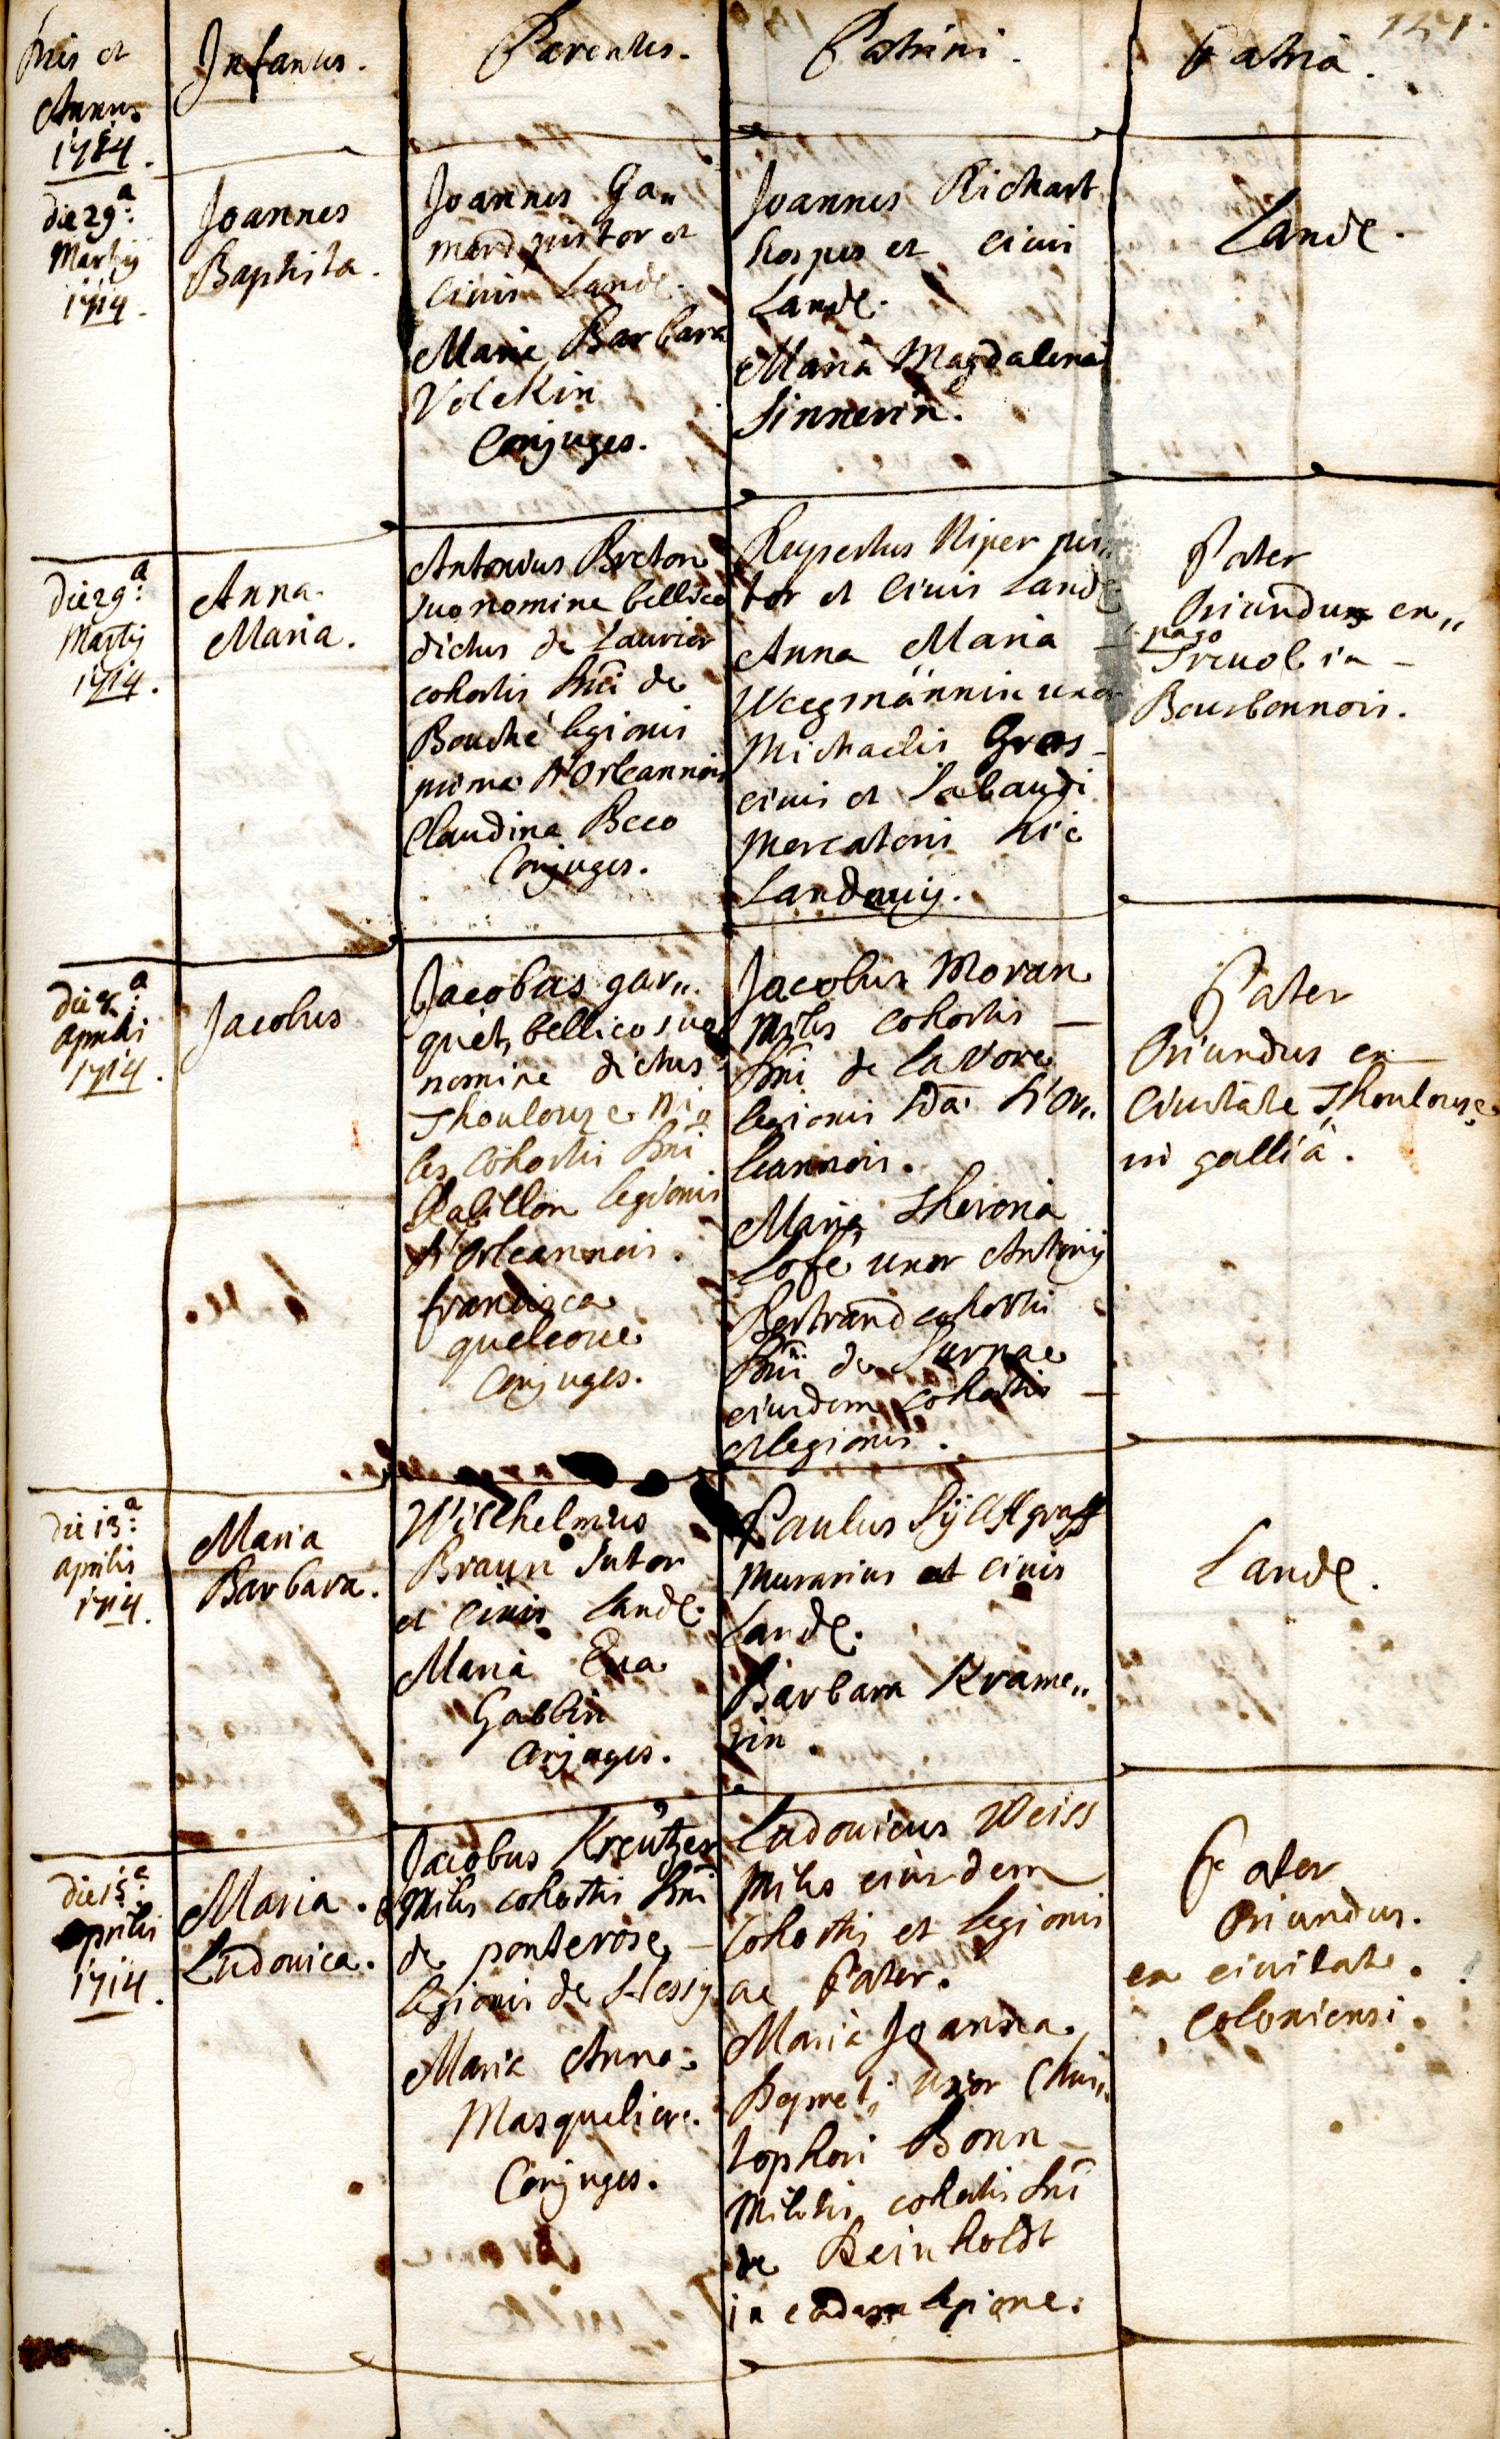 121.
Annus
1714.
Infantes.
Parentes.
Patrini.
Patria.
die 29.a
Martij
1714.
Joannes
Baptista.
Joannes Gau
mard pistor et
Civis Landę.
Maria Barbara
Volckin
Conjuges.
Joannes Richart
hospes et civis
Landę.
Maria Magdalena
Sinnerin.
Landę.
die 29.a
Martij
1714.
Anna
Maria.
Antonius Breton
suo nomine bellico
dictus de Laurier
cohortis Dni de
Bouché legionis
primae d'Orleannois
Claudina Beco
Conjuges.
Rupertus Niper pis„
tor et Civis Landę
Anna Maria
Weegmännin uxor
Michaelis Gros
civis et Sabaudi
Mercatoris hic
Landavij.
Pater
Oriundus ex„
pago
Treuol in
Bourbonnois.
die
Aprilis
1714.
Jacobus
Jacobus gar„
quet, bellico suo
nomine dictus
Thoulouze mi„
les cohortis Dni
Chatillon legionis
d'Orleannois.
francisca
queleoue
Conjuges.
Jacobus Moran
Miles cohortis
Dni de la Vore
legionis 2dae d'Or„
leannois.
Maria Theresia
Lofé uxor Antonij
Bertrand cohortis
Dni de Surnae
eiusdem cohortis
et legionis.
Pater
Oriundus ex
Civitate Thoulouze
in galliâ.
die 13.a
aprilis
1714.
Maria
Barbara.
Wilhelmus
Braun Sutor
et Civis Landę.
Maria Eua
Gabbin
Conjuges.
Paulus
Murarius et civis
Landę.
Barbara Krame„
rin.
Landę.
die 15.a
Aprilis
1714.
Maria
Ludovica.
Jacobus Kreutzer
Miles cohortis Dni
de ponterose
legionis de Hessy
Maria Anna
Masqueliere.
Conjuges.
Ludovicus Weiss
Miles eiusdem
Cohortis et legionis
ac Pater.
Maria Joanna
Depret, uxor Chris„
tophori Bonn
Militis cohortis Dni
de Reinholdt
in eadem legione.
Pater
Oriundus.
ex civitate
coloniensi.